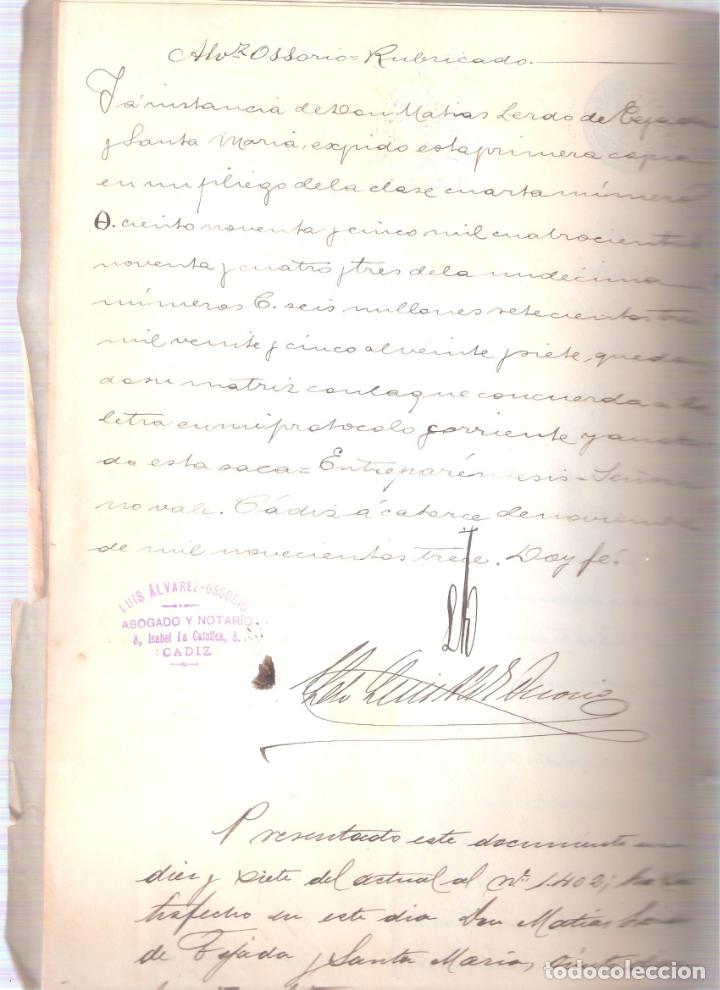 Alvz Ossorio = Rubricado.
Y á instancia de Don Matias Lerdo de Tejada
y Santa Maria, expido esta primera copia
en un pliego de la clase cuarta número
A. ciento noventa y cinco mil cuatrocientos
noventa y cuatro y tres de la undécima
números C. seis millones setecientos
mil veinte y cinco al veinte y siete, quedan
do su matriz con la que concuerda a la
letra en mi protocolo corriente y anota
da esta saca = Entreparéntesis - Señor
no vale. Cádiz á catorce de noviembre
de mil novecientos trece. Doy fé.
LUIS ÁLVAREZ-OSSORIO
ABOGADO Y NOTARIO
8, Isabel la Católica, 8.
CADIZ
Luis Alvz Ossorio
Presentado este documento en
diez y siete del actual al nº 1.402; ha sa
tisfecho en este dia Don Matias Lerdo
de Tejada y Santa Maria,
todocoleccion.net